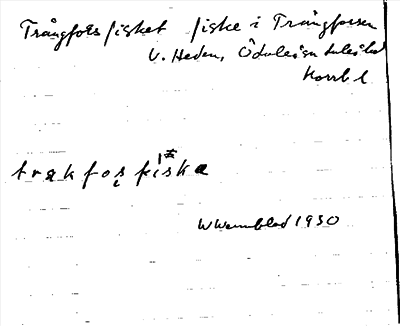 Trångforsfisket fiske i Trångforsen
V. Heden, Ödalen
Korrb l
trækfosfiska
W Wennblad 1930